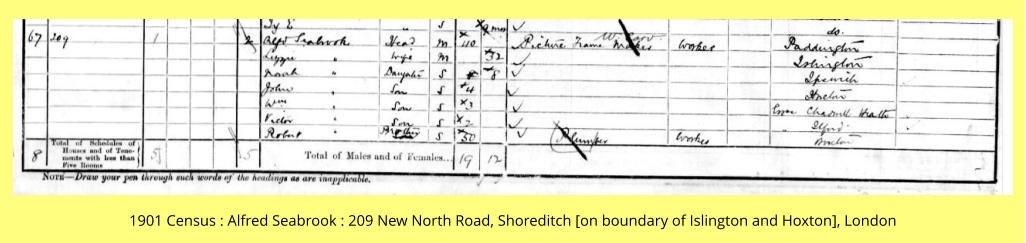 Ivy E " S 9 mos do.
67 209 1 2 Alfd Seabrook Head M 40 Picture Frame Maker Worker Paddington
Lizzie " Wife M 32 Islington
Norah " Daughter S 8 Ipswich
John " Son S 4 Hoxton
Wm " Son S 3 Essex Chadwell Heath
Victor " Son S 2 " Ilford
Robert " Brother S 50 Plumber Worker Hoxton
8 Total of Schedules of Houses and of Tenements with less than Five Rooms 5 5 Total of Males and of Females... 19 12
NOTE—Draw your pen through such words of the headings as are inapplicable.
1901 Census : Alfred Seabrook : 209 New North Road, Shoreditch [on boundary of Islington and Hoxton], London